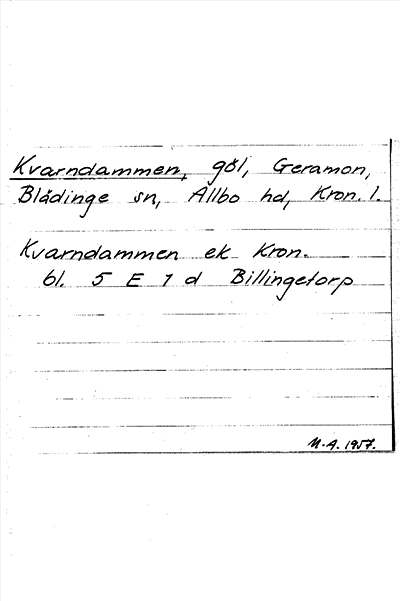 Kvarndammen, göl, Geramon,
Blädinge sn, Allbo hd, Kron. l.
Kvarndammen ek Kron.
bl. 5 E 1 d Billingetorp
M-A. 1957.